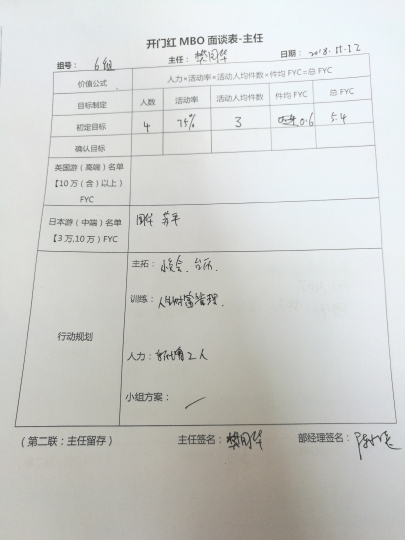 开门红 MBO 面谈表-主任
组号: 6组 主任: 樊同华 日期: 2018.11.12
价值公式 人力×活动率×活动人均件数×件均 FYC=总 FYC
目标制定 人数 活动率 活动人均件数 件均 FYC 总 FYC
初定目标 4 75% 3 0.6 5.4
确认目标
英国游（高端）名单
【10 万（含）以上）
FYC
日本游（中端）名单 同华 苏平
【3 万,10 万）FYC
行动规划
主拓:
训练: 财富管理.
人力: 新增2人
小组方案: /
（第二联：主任留存） 主任签名: 樊同华 部经理签名: